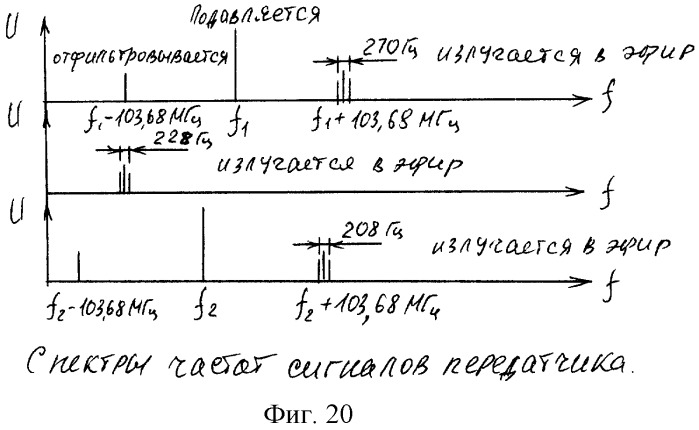 U
подавляется
отфильтровывается
270 Гц
излучается в эфир
f₁-103,68 МГц
f₁
f₁+103,68 МГц
f
U
228 Гц
излучается в эфир
f
U
208 Гц
излучается в эфир
f₂-103,68 МГц
f₂
f₂+103,68 МГц
f
Спектры частот сигналов передатчика.
Фиг. 20